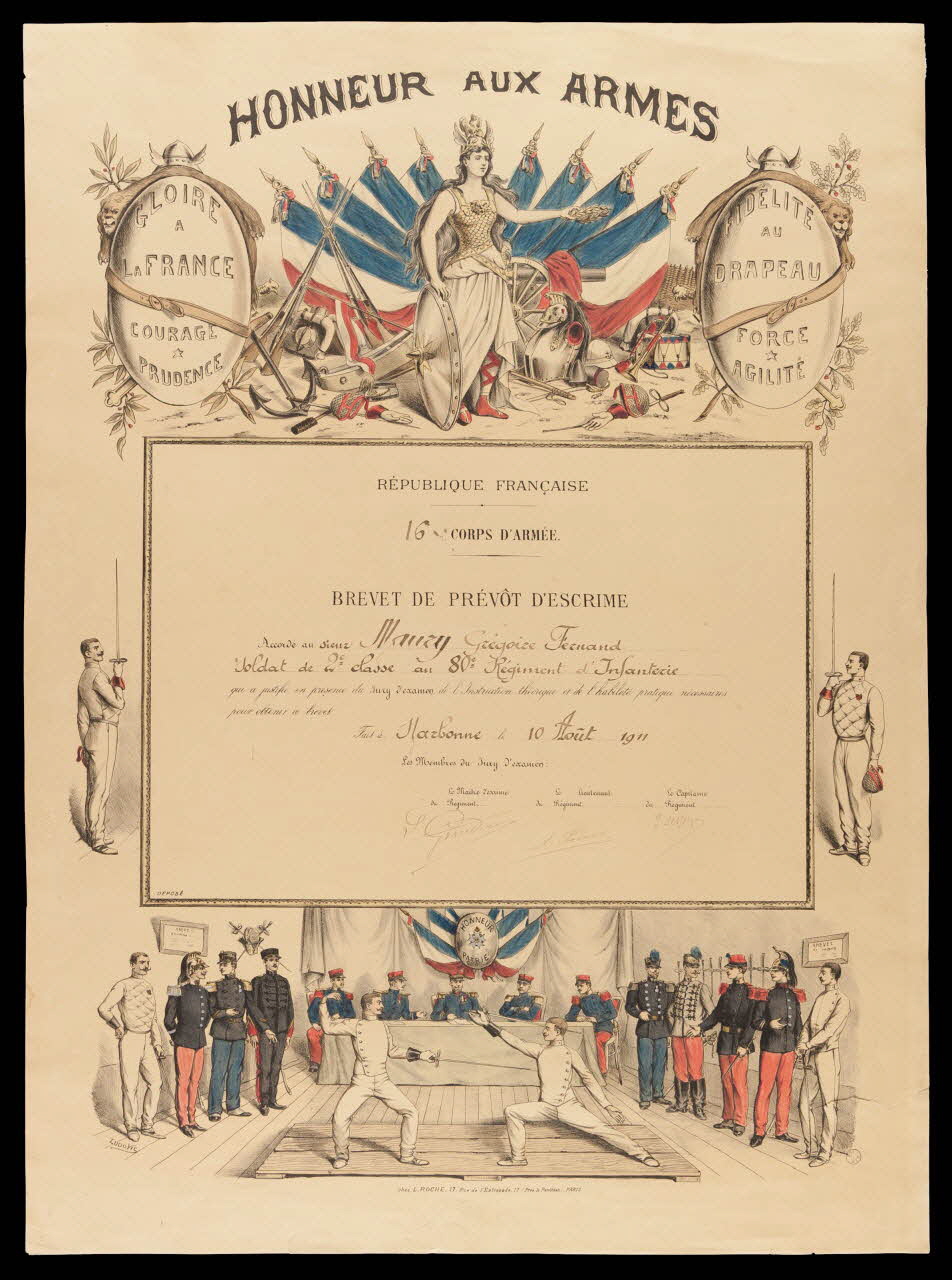 HONNEUR AUX ARMES
GLOIRE
A
LA FRANCE
COURAGE
PRUDENCE
FIDÉLITÉ
AU
DRAPEAU
FORCE
AGILITÉ
RÉPUBLIQUE FRANÇAISE
16e CORPS D'ARMÉE.
BREVET DE PRÉVÔT D'ESCRIME
Accordé au sieur Maury Grégoire Fernand
Soldat de 2e classe au 80e Régiment d'Infanterie
qui a justifié en présence du Jury d'examen de l'Instruction théorique et de l'habileté pratique nécessaires
pour obtenir ce brevet
Fait à Narbonne le 10 Août 1911
Les Membres du Jury d'examen:
Le Maître d'escrime Le Lieutenant Le Capitaine
du Régiment. du Régiment. du Régiment
DÉPOSÉ
HONNEUR
PATRIE
BREVET
BREVET
LUDOVIC
chez L. ROCHE, 17, Rue de l'Estrapade, 17 (Près le Panthéon) PARIS